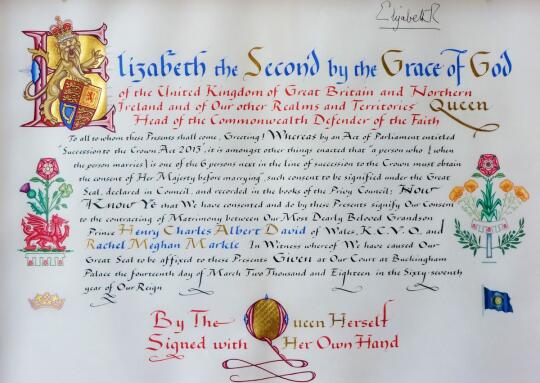 Elizabeth R
Elizabeth the Second by the Grace of God
of the United Kingdom of Great Britain and Northern
Ireland and of Our other Realms and Territories Queen
Head of the Commonwealth Defender of the Faith
To all to whom these Presents shall come, Greeting! Whereas by an Act of Parliament entitled
"Succession to the Crown Act 2013", it is amongst other things enacted that "a person who (when
the person marries) is one of the 6 persons next in the line of succession to the Crown must obtain
the consent of Her Majesty before marrying", such consent to be signified under the Great
Seal, declared in Council, and recorded in the books of the Privy Council; Now
Know Ye that We have consented and do by these Presents signify Our Consent
to the contracting of Matrimony between Our Most Dearly Beloved Grandson
Prince Henry Charles Albert David of Wales, K.C.V.O. and
Rachel Meghan Markle. In Witness whereof We have caused Our
Great Seal to be affixed to these Presents Given at Our Court at Buckingham
Palace the fourteenth day of March Two Thousand and Eighteen in the Sixty-seventh
year of Our Reign
By The Queen Herself
Signed with Her Own Hand